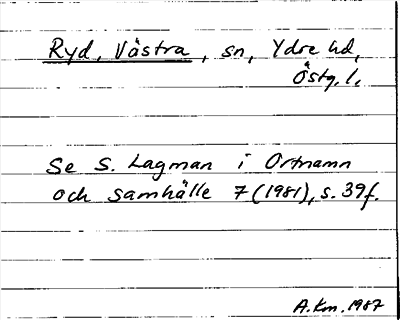 Ryd, Västra, sn, Ydre hd,
Östg. l.
Se S. Lagman i Ortnamn
och samhälle 7 (1981), s. 39f.
A. Km. 1987